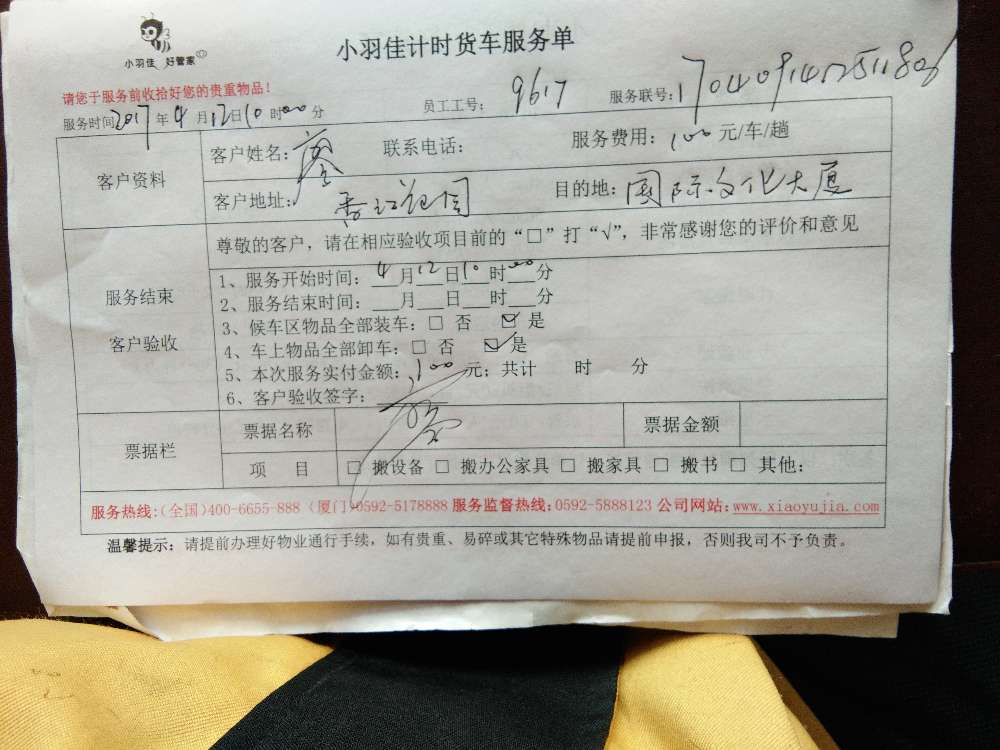 小羽佳 好管家
小羽佳计时货车服务单
请您于服务前收拾好您的贵重物品！
服务时间2017年4月12日10时00分 员工工号：9617 服务联号：
客户资料
客户姓名：廖 联系电话： 服务费用：100元/车/趟
客户地址： 目的地：国际文化大厦
服务结束
客户验收
尊敬的客户，请在相应验收项目前的“□”打“√”，非常感谢您的评价和意见
1、服务开始时间：4月12日10时00分
2、服务结束时间：___月___日___时___分
3、候车区物品全部装车：□ 否 ☑ 是
4、车上物品全部卸车：□ 否 ☑ 是
5、本次服务实付金额：100元；共计 时 分
6、客户验收签字：廖
票据栏
票据名称 票据金额
项 目 □ 搬设备 □ 搬办公家具 □ 搬家具 □ 搬书 □ 其他：
服务热线：（全国）400-6655-888（厦门）0592-5178888 服务监督热线：0592-5888123 公司网站：www.xiaoyujia.com
温馨提示：请提前办理好物业通行手续，如有贵重、易碎或其它特殊物品请提前申报，否则我司不予负责。